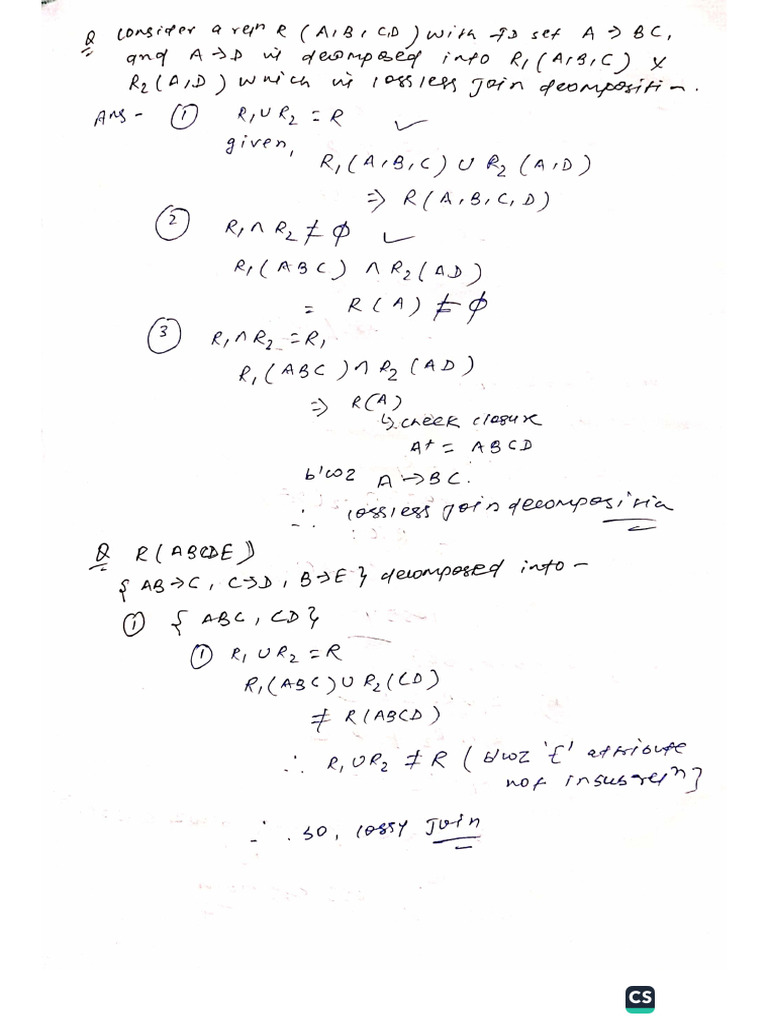 Q Consider a relⁿ R (A,B,C,D) with FD set A → BC,
and A→D is decomposed into R₁(A,B,C) &
R₂(A,D) which is lossless join decomposition.
Ans - ① R₁∪R₂ = R ✓
given,
R₁(A,B,C) ∪ R₂(A,D)
⇒ R(A,B,C,D)
② R₁∩R₂ ≠ ϕ ✓
R₁(ABC) ∩ R₂(AD)
= R(A) ≠ ϕ
③ R₁∩R₂ = R₁
R₁(ABC)∩R₂(AD)
⇒ R(A)
↳ check closure
A⁺ = ABCD
b'coz A→BC.
∴ lossless join decomposition
Q R(ABCDE)
{AB→C, C→D, B→E} decomposed into –
① {ABC, CD}
① R₁∪R₂ = R
R₁(ABC)∪R₂(CD)
≠ R(ABCD)
∴ R₁∪R₂ ≠ R (b'coz 'E' attribute
not in subrelⁿ]
∴ so, lossy join
CS